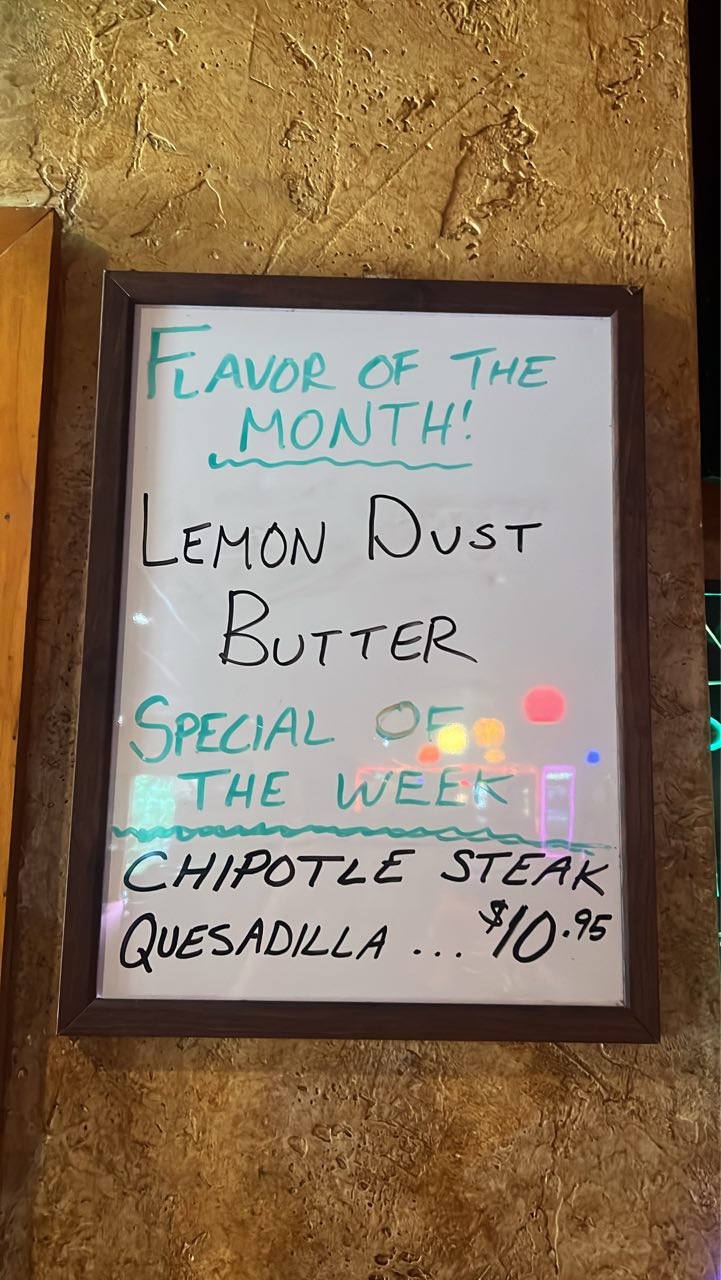 FLAVOR OF THE
MONTH!
LEMON DUST
BUTTER
SPECIAL OF
THE WEEK
CHIPOTLE STEAK
QUESADILLA ... $10.95